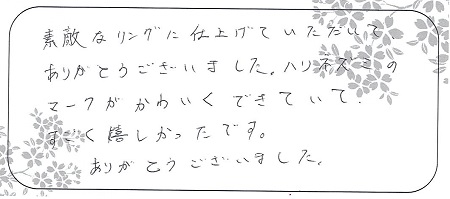 素敵なリングに仕上げていただいて
ありがとうございました。ハリネズミの
マークがかわいくできていて、
すごく嬉しかったです。
ありがとうございました。